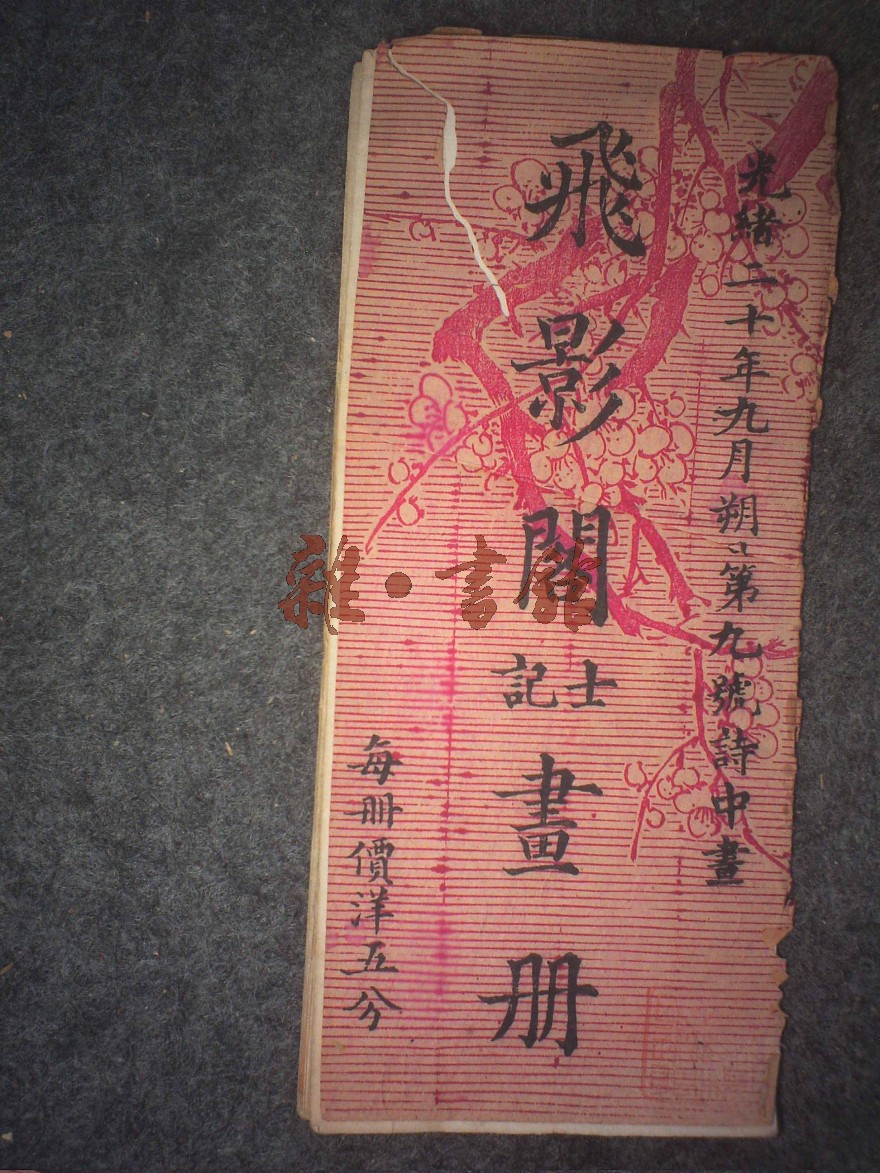 光緒二十年九月朔日第九號詩中畫
飛影閣士記畫册
每册價洋五分
雜·書館